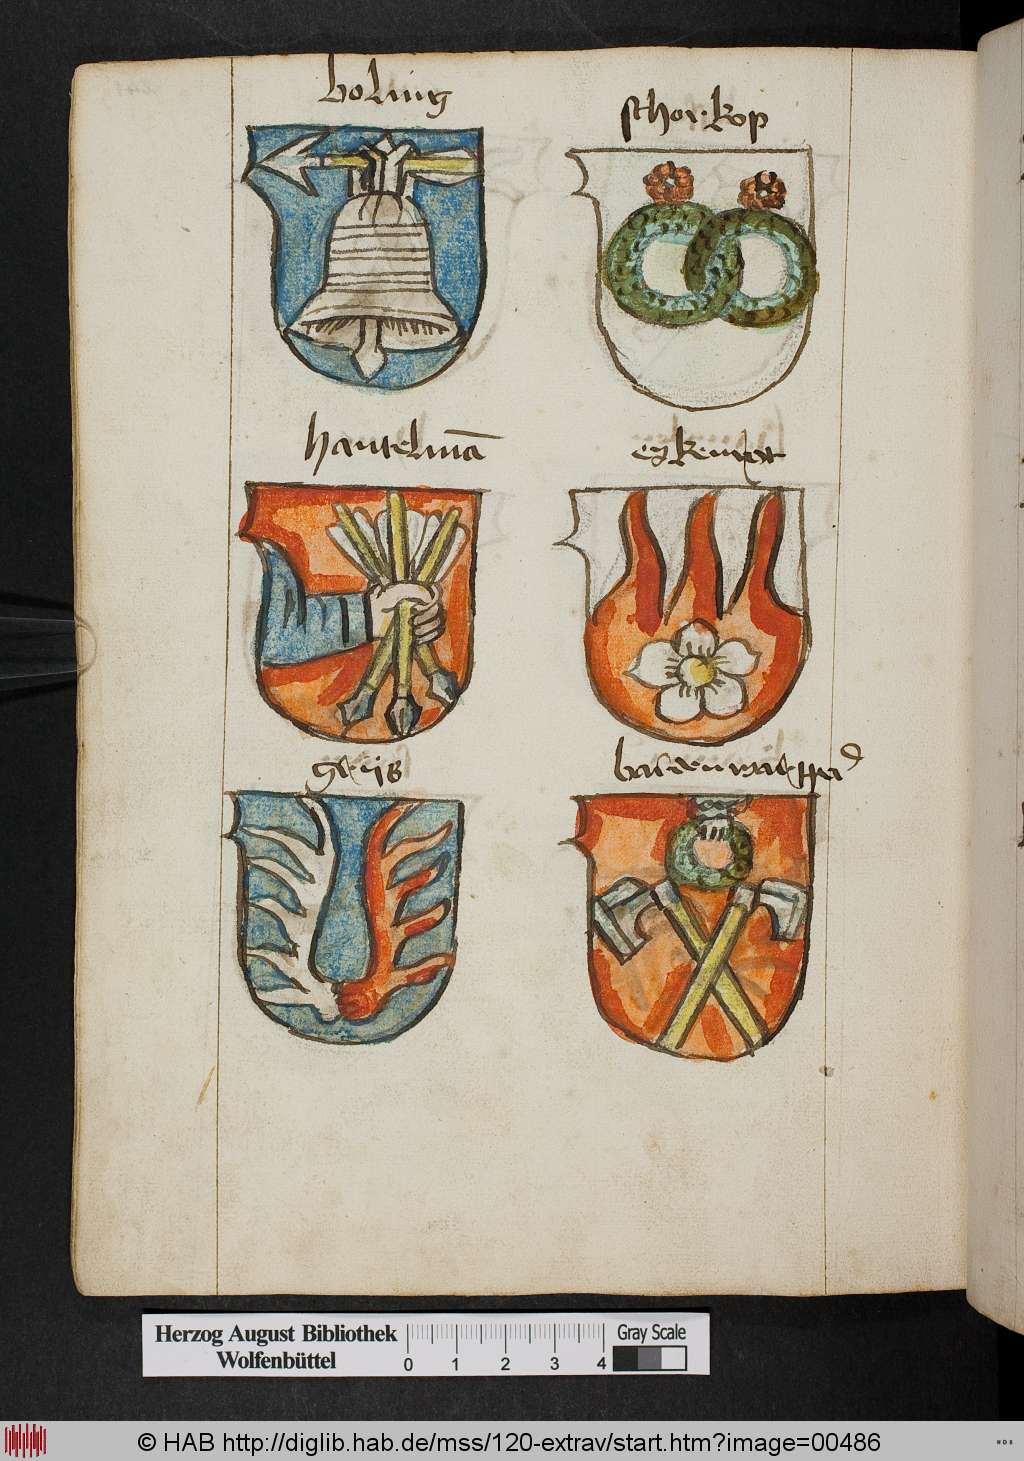 boling
schor kop
hantelmā
geijs
Herzog August Bibliothek
Wolfenbüttel
0 1 2 3 4
Gray Scale
© HAB http://diglib.hab.de/mss/120-extrav/start.htm?image=00486